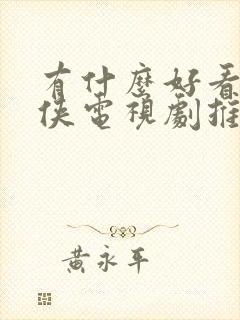 有什麼好看
俠電視劇推
黃永平